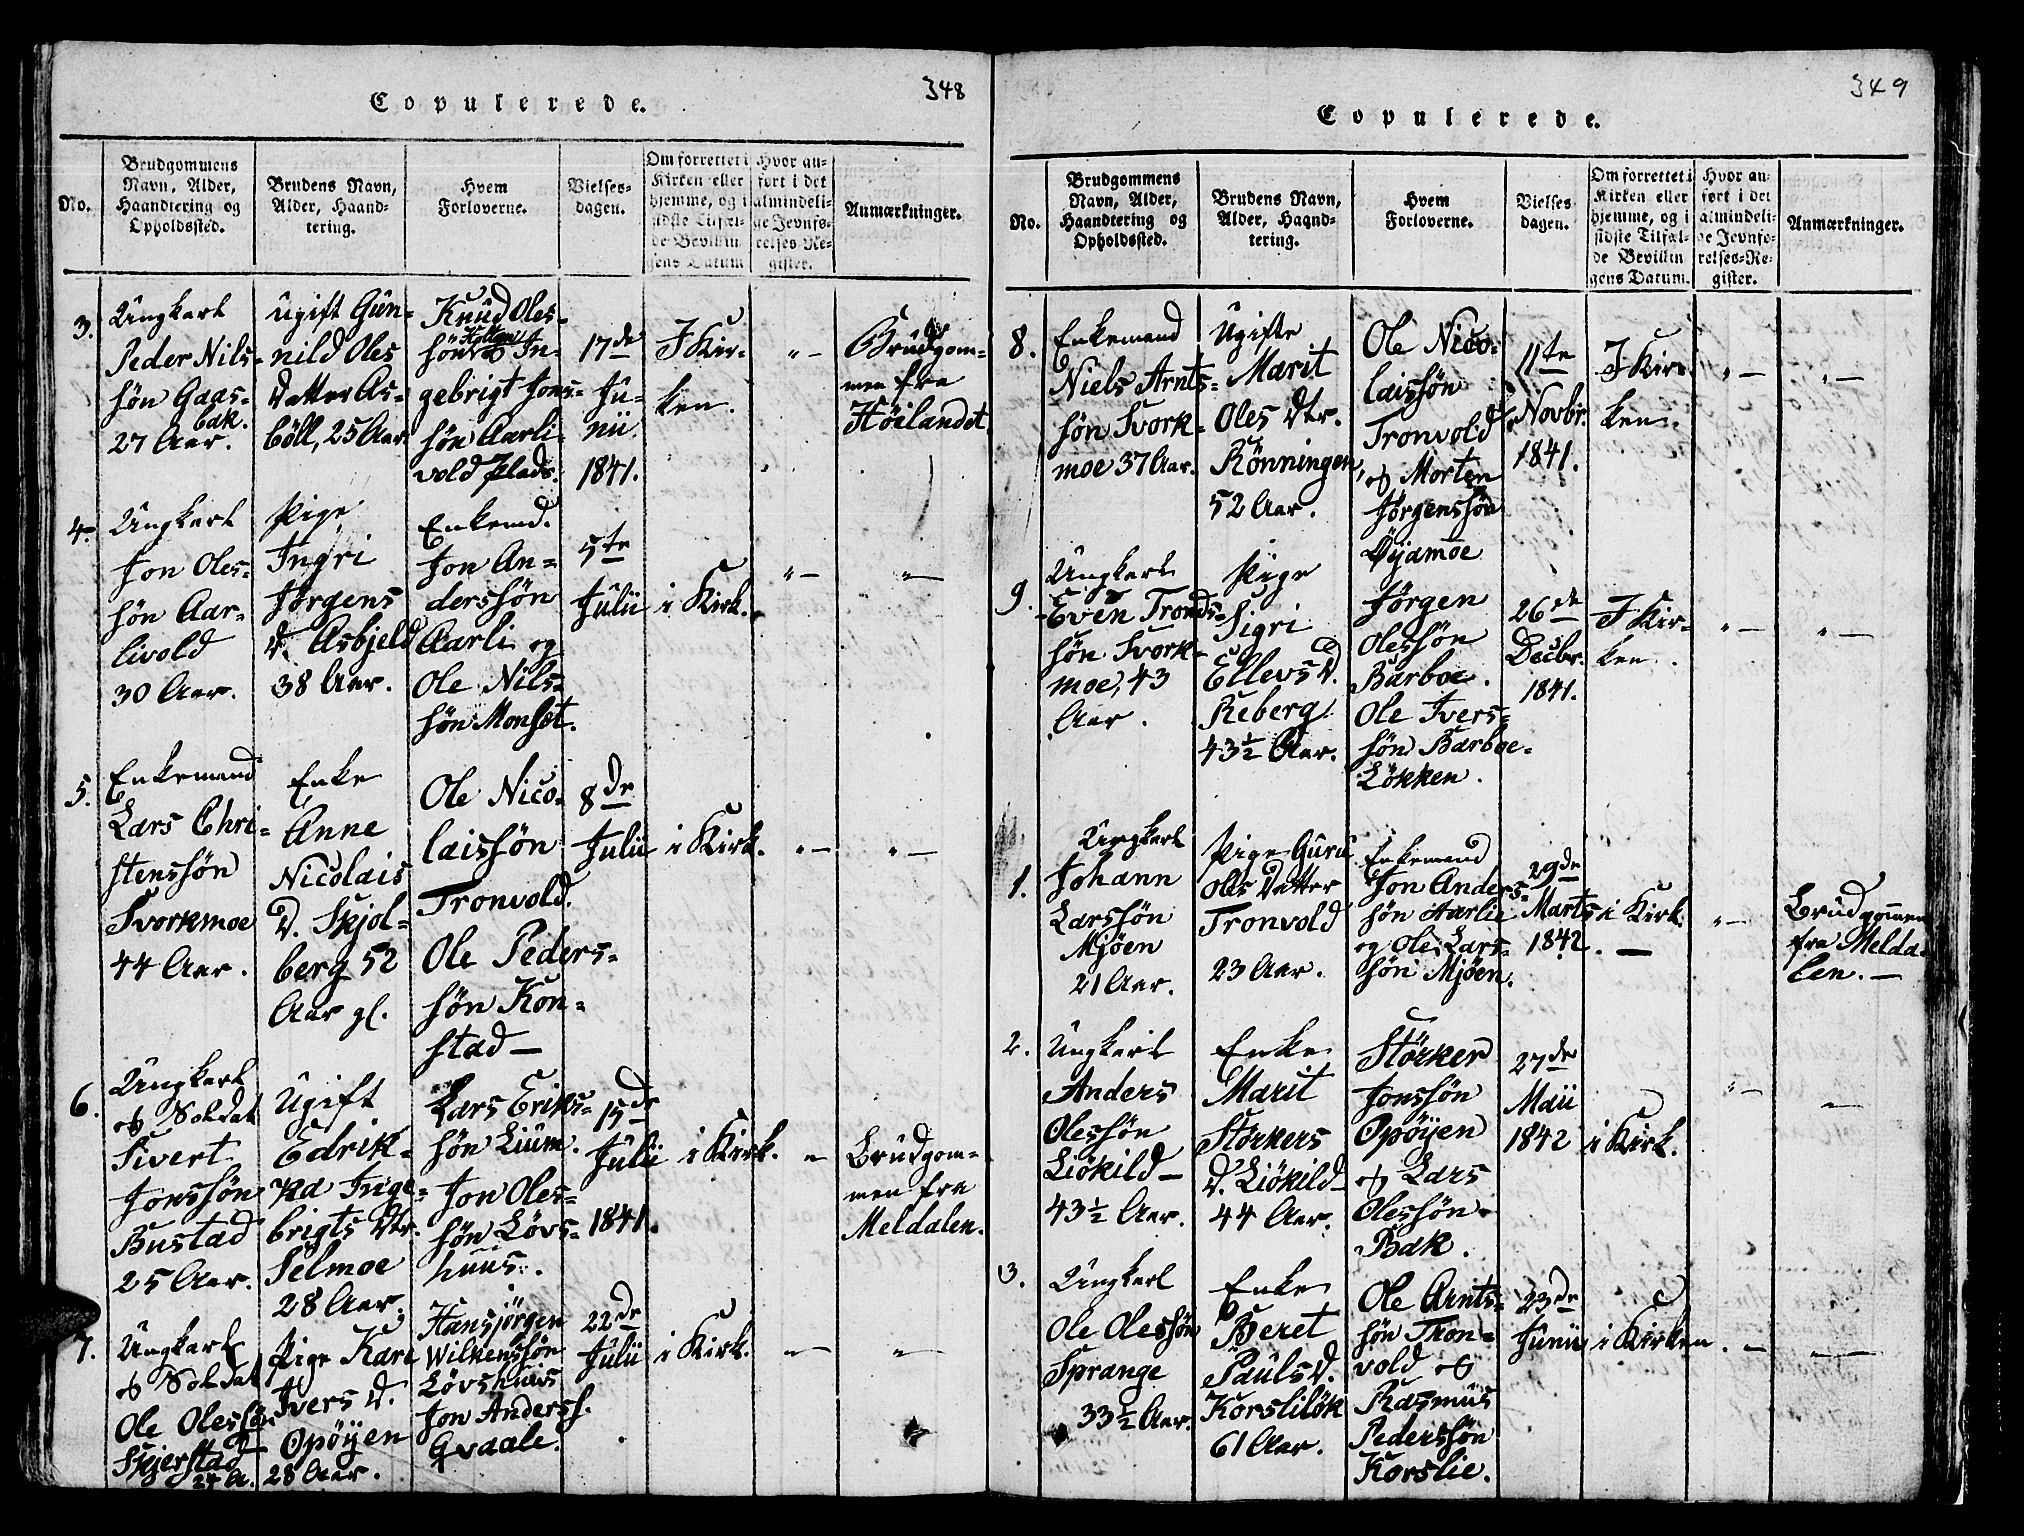 348
Copulerede.
No.
Brudgommens
Navn, Alder,
Haandtering og
Opholdssted.
Brudens Navn,
Alder, Haand-
tering.
Hvem
Forloverne.
Vielses-
dagen.
Om forrettet i
Kirken eller
hjemme, og i
sidste Tilfæl-
de Bevillin
gens Datum
Hvor an-
ført i det
almindeli-
ge Jevnfø-
relses-Re-
gister.
Anmærkninger.
3.
Ungkarl
Peder Nils-
søn Gaas-
bak.
27 Aar.
ugift Gun-
nild Oles
Datter As-
böll, 25 Aar
Knud Oles-
søn
og In-
gebrigt Jons-
søn Aarli-
vold Plads.
17de
Ju-
nii
1841.
I Kir-
ken.
"—
Brudgom-
men fra
Höilandet.
4.
Ungkarl
Jon Oles-
søn Aar-
livold
30 Aar.
Pige
Ingri
Jørgens
D. Asbjeld
38 Aar.
Enkemd.
Jon An-
derssøn
Aarli og
Ole Nils-
søn Monset.
5te
Julii
i Kirk.
"—
"—
5.
Enkemand
Lars Chri-
stenssøn
Svorkmoe
44 Aar.
Enke
Anne
Nicolais
D. Skjol-
berg 52
Aar gl.
Ole Nico-
laissøn
Tronvold.
Ole Peders-
søn Kon-
stad—
8de
Julii
i Kirk.
"—
"—
6.
Ungkarl
og Soldat
Sivert
Jonssøn
Bustad
25 Aar.
Ugift
Edrik-
ka Inge-
brigts Dtr.
Selmoe
28 Aar.
Lars Eriks-
søn Lium.
Jon Oles-
søn Lövs-
huus.
15de
Julii
1841.
i Kirk.
"
Brudgom-
men fra
Meldalen.
7.
Ungkarl
og Soldat
Ole Olessøn
Skjerstad
24 A.
Pige Kari
Ivers D.
Opöyen
28 Aar.
Hansjørgen
Wilkenssön
Lövshuus
Jon Anderss.
Qvaale.
22de
Julii
i Kirk.
"—
"—
349
Copulerede.
No.
Brudgommens
Navn, Alder,
Haandtering og
Opholdssted.
Brudens Navn,
Alder, Haand-
tering.
Hvem
Forloverne.
Vielses
dagen.
Om forrettet i
Kirken eller
hjemme, og i
sidste Tilfæl-
de Bevillin
gens Datum.
Hvor an-
ført i det
almindeli-
ge Jevnfø-
relses-Re-
gister.
Anmærkninger.
8.
Enkemand
Niels Arnts-
søn Svork-
moe 37 Aar.
Ugifte
Marit
Oles Dtr.
Rönningen,
52 Aar.
Ole Nico-
laissøn
Tronvold
og Morten
Jørgenssøn
Öyamoe
11te
Novbr.
1841.
I Kir-
ken.
"—
"—
9.
Ungkarl
Even Tronds-
søn Svork-
moe, 43
Aar.
Pige
Sigri
Ellevs D.
Reberg
43½ Aar.
Jørgen
Olessøn
Barboe.
Ole Ivers-
søn Barboe-
Lökken.
26de
Decbr.
1841.
I Kir-
ken.
"—
"—
1.
Ungkarl
Johann
Larssøn
Mjöen
21 Aar.
Pige Guru
Oles Datter
Tronvold
23 Aar.
Enkemand
Jon Anders-
søn Aarlie
og Ole Lars-
søn Mjöen.
29de
Marts
1842.
i Kirk.
—
"—
Brudgommen
fra Melda-
len.—
2.
Ungkarl
Anders
Olessøn
Liökild—
43½ Aar.
Enke
Marit
Störkers
D. Liökild—
44 Aar.
Störker
Jonssøn
Opöyen
og Lars
Olessøn
Bak.
27de
Maii
1842
i Kirk.
"—
—
3.
Ungkarl
Ole Olessøn
Sprange
33½ Aar.
Enke
Beret
Pauls D.
Korsliløk
61 Aar.
Ole Arnts-
søn Tron-
vold og
Rasmus
Pederssøn
Korslie.
23de
Junii
i Kirken.
—
—